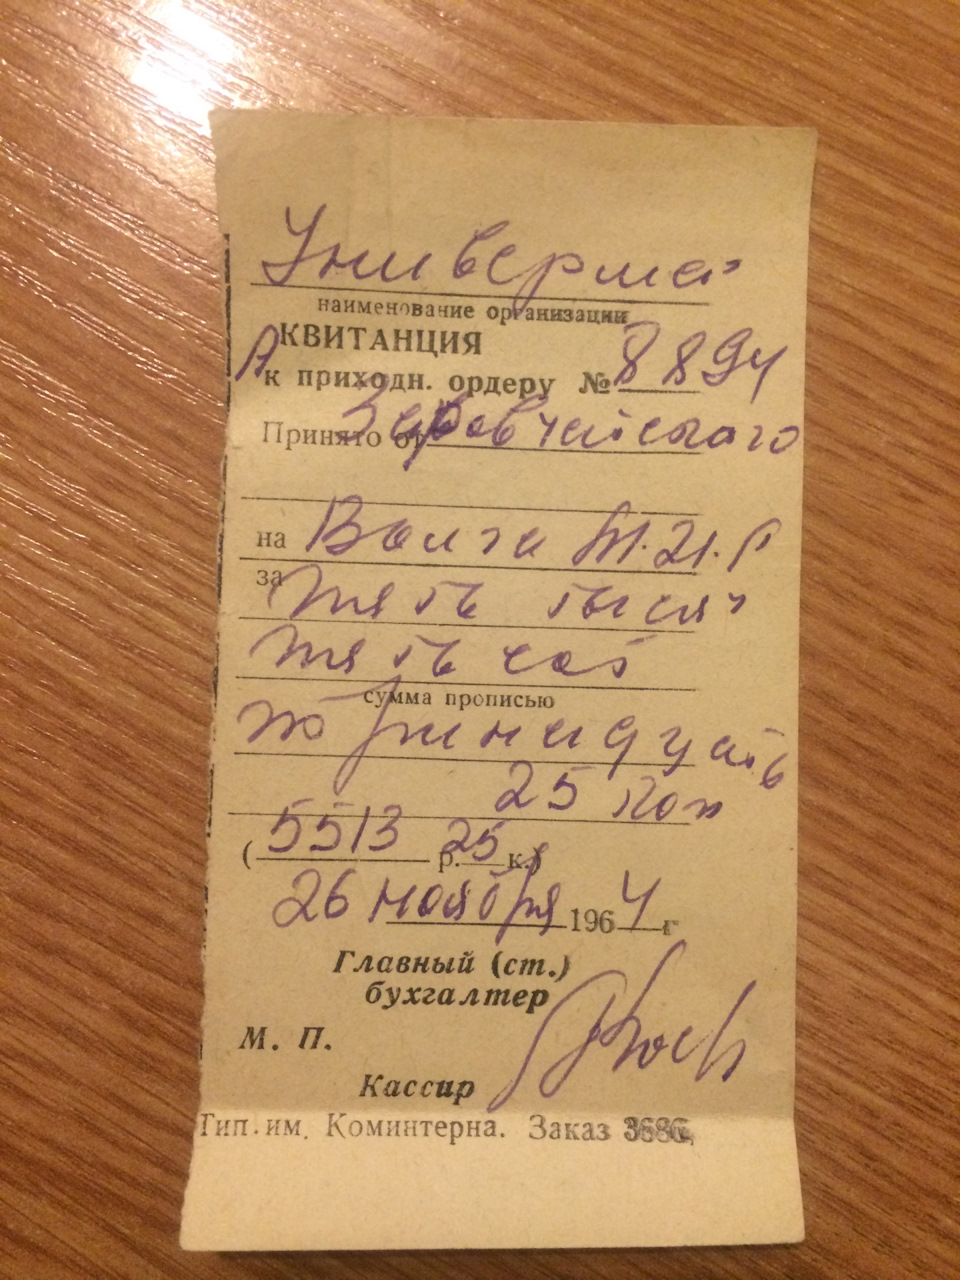 Универмаг
наименование организации
КВИТАНЦИЯ
к приходн. ордеру № 8894
Принято от
на Волга М.21.
за пять тысяч
пять сот
сумма прописью
тринадцать
25 коп
(5513 р. 25 к.)
26 ноября 1964 г
Главный (ст.)
бухгалтер
М. П.
Кассир
Тип. им. Коминтерна. Заказ 3686